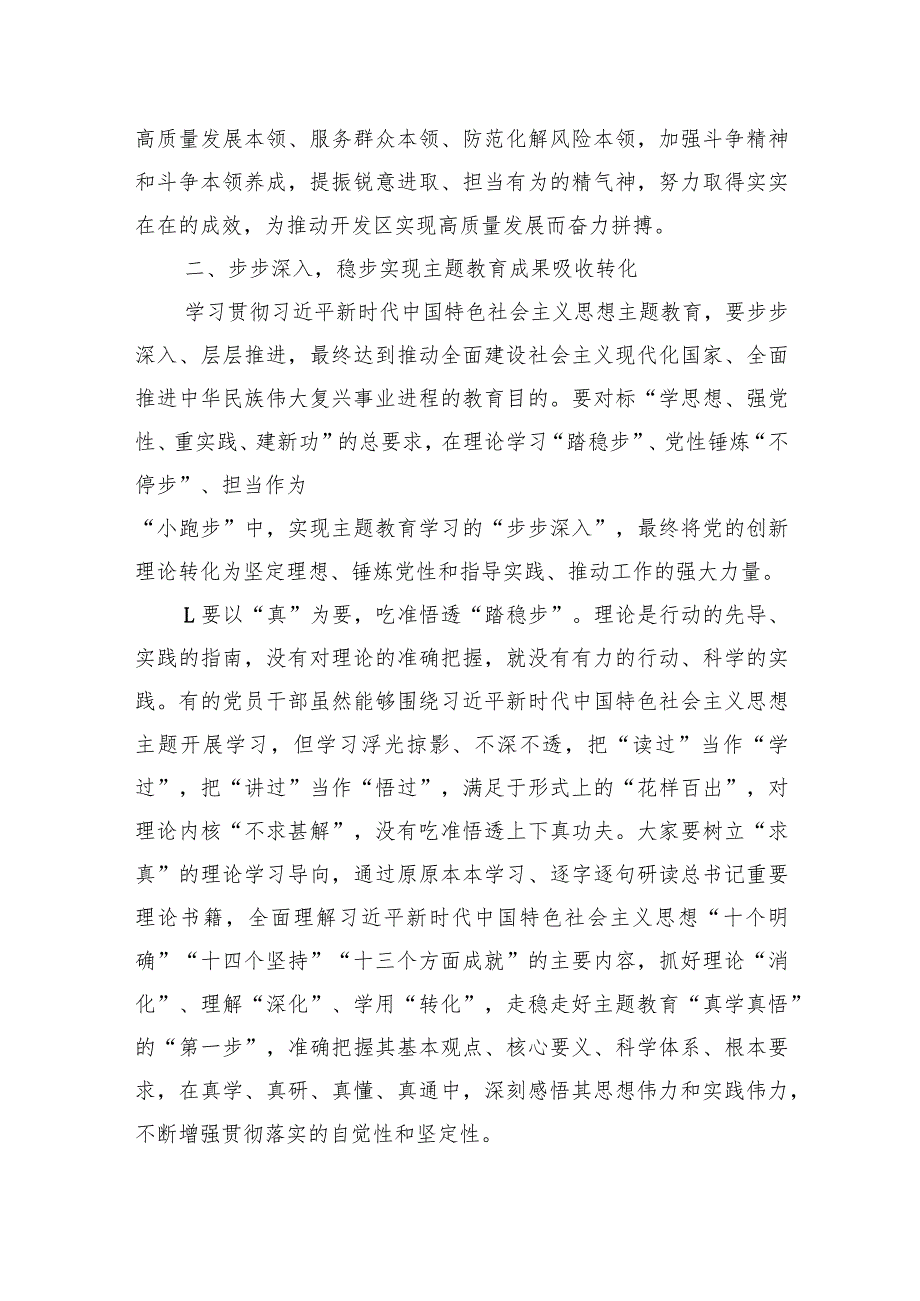 高质量发展本领、服务群众本领、防范化解风险本领，加强斗争精神
和斗争本领养成，提振锐意进取、担当有为的精气神，努力取得实实
在在的成效，为推动开发区实现高质量发展而奋力拼搏。
二、步步深入，稳步实现主题教育成果吸收转化
学习贯彻习近平新时代中国特色社会主义思想主题教育，要步步
深入、层层推进，最终达到推动全面建设社会主义现代化国家、全面
推进中华民族伟大复兴事业进程的教育目的。要对标“学思想、强党
性、重实践、建新功”的总要求，在理论学习“踏稳步”、党性锤炼“不
停步”、担当作为
“小跑步”中，实现主题教育学习的“步步深入”，最终将党的创新
理论转化为坚定理想、锤炼党性和指导实践、推动工作的强大力量。
L要以“真”为要，吃准悟透“踏稳步”。理论是行动的先导、
实践的指南，没有对理论的准确把握，就没有有力的行动、科学的实
践。有的党员干部虽然能够围绕习近平新时代中国特色社会主义思想
主题开展学习，但学习浮光掠影、不深不透，把“读过”当作“学
过”，把“讲过”当作“悟过”，满足于形式上的“花样百出”，对
理论内核“不求甚解”，没有吃准悟透上下真功夫。大家要树立“求
真”的理论学习导向，通过原原本本学习、逐字逐句研读总书记重要
理论书籍，全面理解习近平新时代中国特色社会主义思想“十个明
确”“十四个坚持”“十三个方面成就”的主要内容，抓好理论“消
化”、理解“深化”、学用“转化”，走稳走好主题教育“真学真悟”
的“第一步”，准确把握其基本观点、核心要义、科学体系、根本要
求，在真学、真研、真懂、真通中，深刻感悟其思想伟力和实践伟力，
不断增强贯彻落实的自觉性和坚定性。